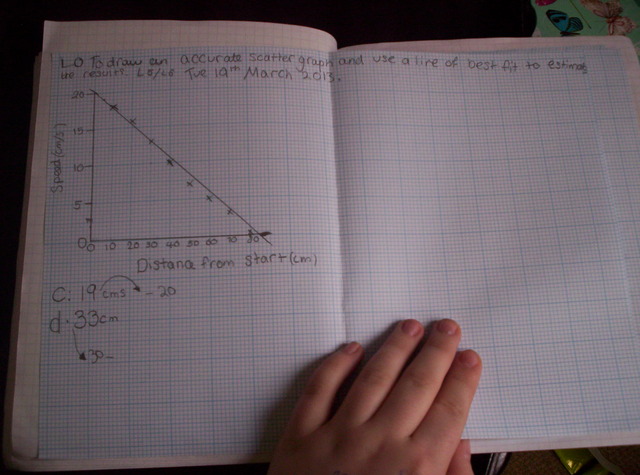 LO To draw an accurate scatter graph and use a line of best fit to estimate
results. L5/L6 Tue 19th March 2013.
20
15
10
5
0
Speed (cm/s)
0 10 20 30 40 50 60 70 80
Distance from start (cm)
C. 19 cms - 20
d. 33cm
30-